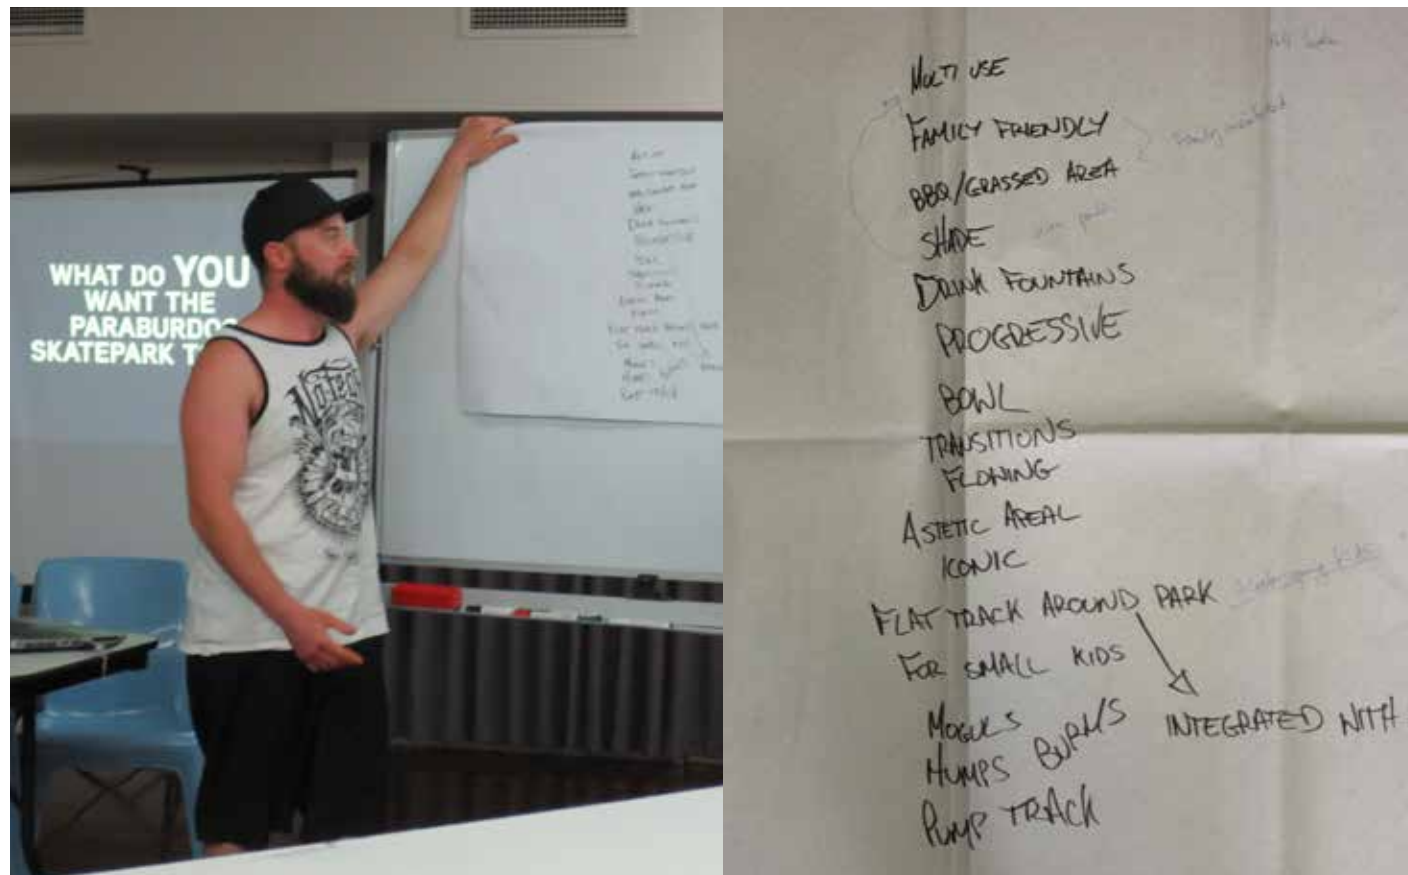 WHAT DO YOU
WANT THE
PARABURDOO
SKATEPARK T
NOTED
MULTI USE
FAMILY FRIENDLY
BBQ/GRASSED AREA
SHADE
DRINK FOUNTAINS
PROGRESSIVE
BOWL
TRANSITIONS
FLOWING
ASTETIC APEAL
ICONIC
FLAT TRACK AROUND PARK
FOR SMALL KIDS
MOGULS
HUMPS BURMS
INTEGRATED WITH
PUMP TRACK